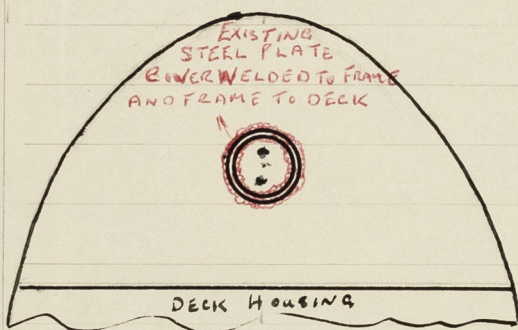 EXISTING
STEEL PLATE
COVER WELDED TO FRAME
AND FRAME TO DECK
DECK HOUSING